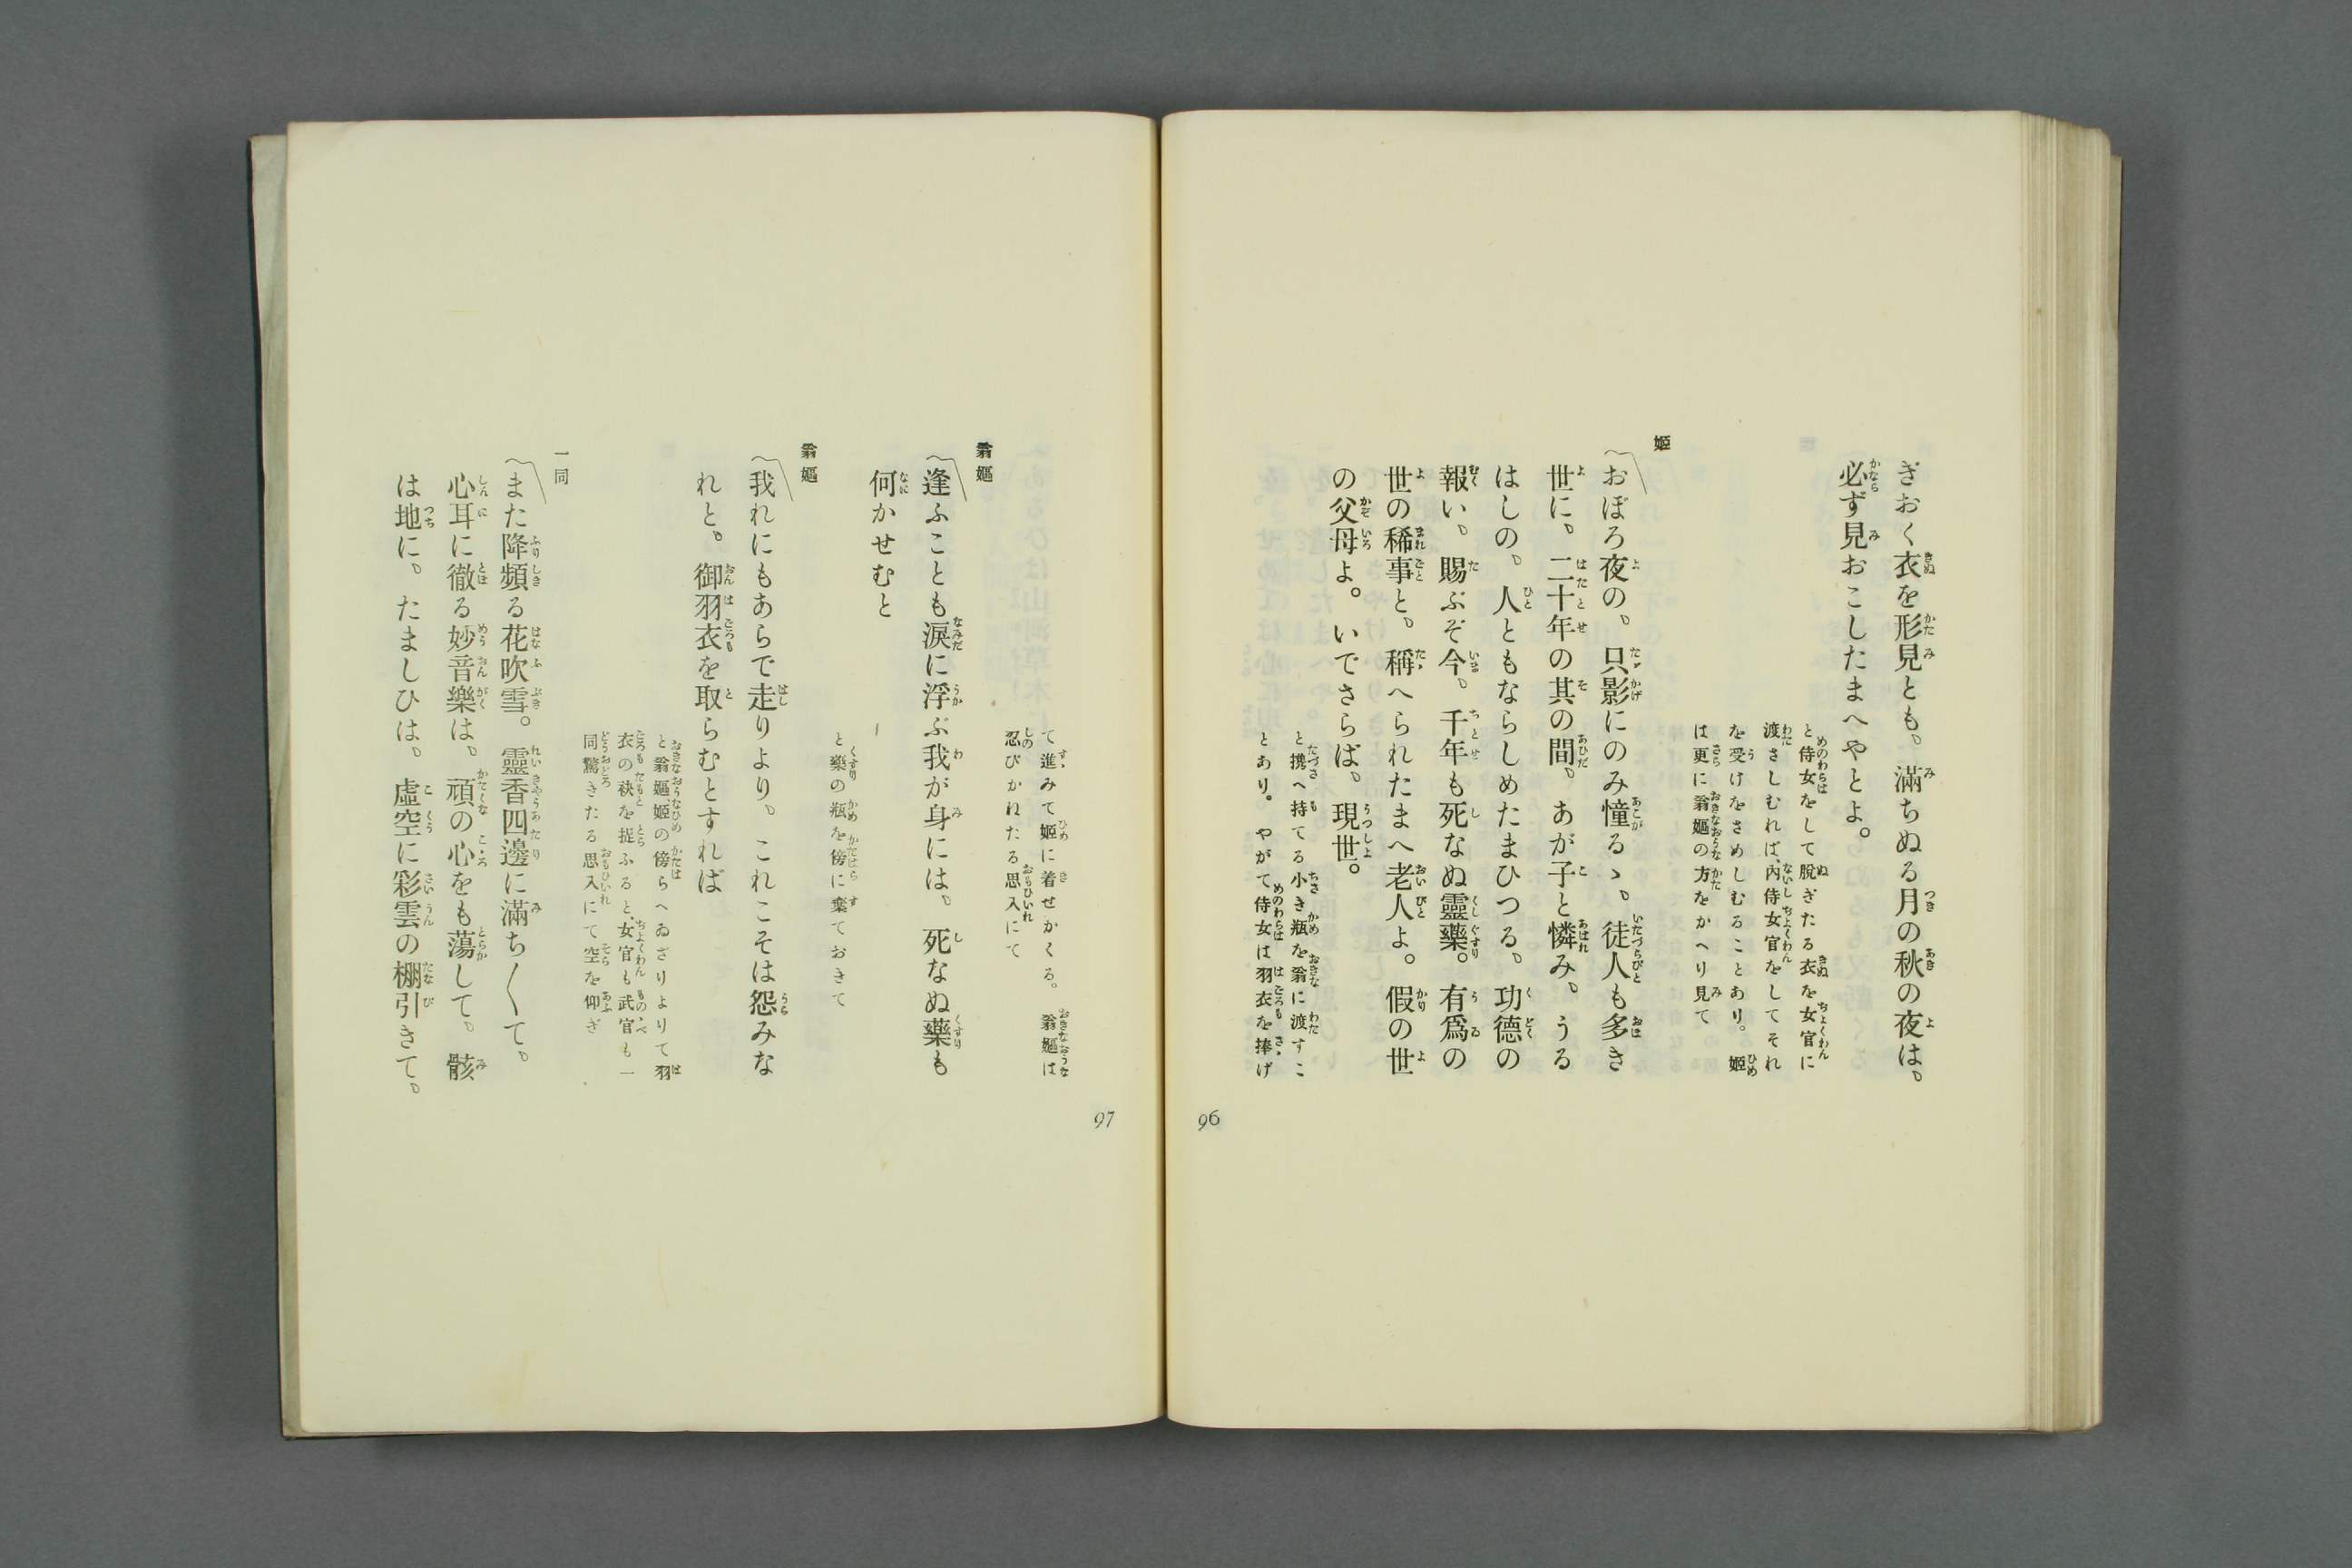 ぎおく衣を形見とも。滿ちぬる月の秋の夜は。
必ず見おこしたまへやとよ。
と侍女をして脫ぎたる衣を女官に
渡さしむれば、內侍女官をしてそれ
を受けをさめしむることあり。姬
は更に翁嫗の方をかへり見て
姬
〽おぼろ夜の。只影にのみ憧るゝ。徒人も多き
世に。二十年の其の間。あが子と憐み。うる
はしの。人ともならしめたまひつる。功德の
報い。賜ぶぞ今。千年も死なぬ靈藥。有爲の
世の稀事と。稱へられたまへ老人よ。假の世
の父母よ。いでさらば。現世。
と携へ持てる小さき瓶を翁に渡すこ
とあり。やがて侍女は羽衣を捧げ
96
て進みて姬に着せかくる。翁嫗は
忍びかねたる思入にて
翁嫗
〽逢ふことも淚に浮ぶ我が身には。死なぬ藥も
何かせむと
と藥の瓶を傍に棄ておきて
翁嫗
〽我れにもあらで走りより。これこそは怨みな
れと。御羽衣を取らむとすれば
と翁嫗、姬の傍らへゐざりよりて羽
衣の袂を捉ふると、女官も武官も一
同驚きたる思入にて空を仰ぎ
一同
〽また降頻る花吹雪。靈香四邊に滿ち〱て。
心耳に徹る妙音樂は。頑の心をも蕩して。骸
は地に。たましひは。虛空に彩雲の棚引きて。
97